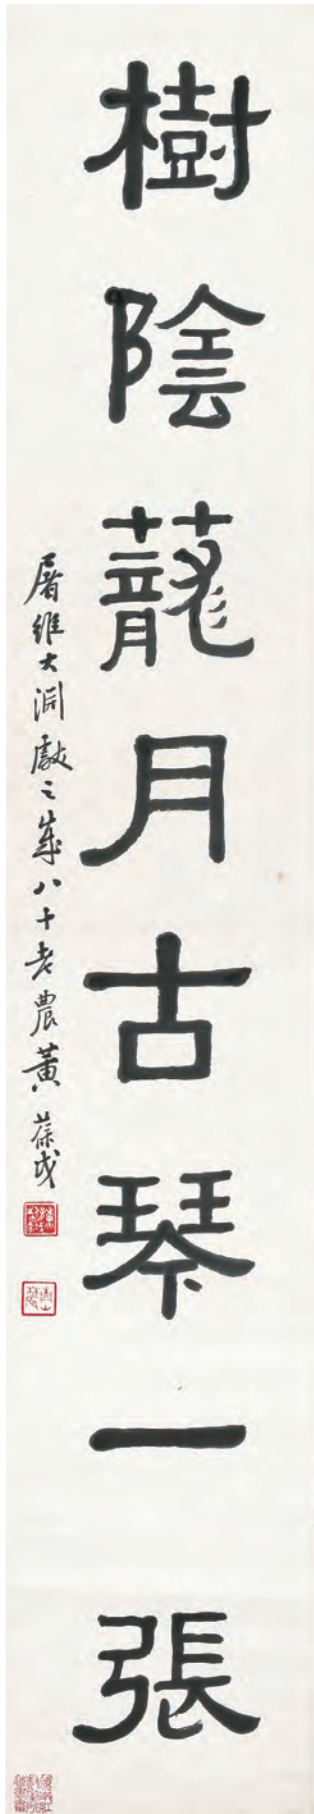 樹陰蘢月古琴一張
屠維大淵獻之歲八十老農黃葆戉